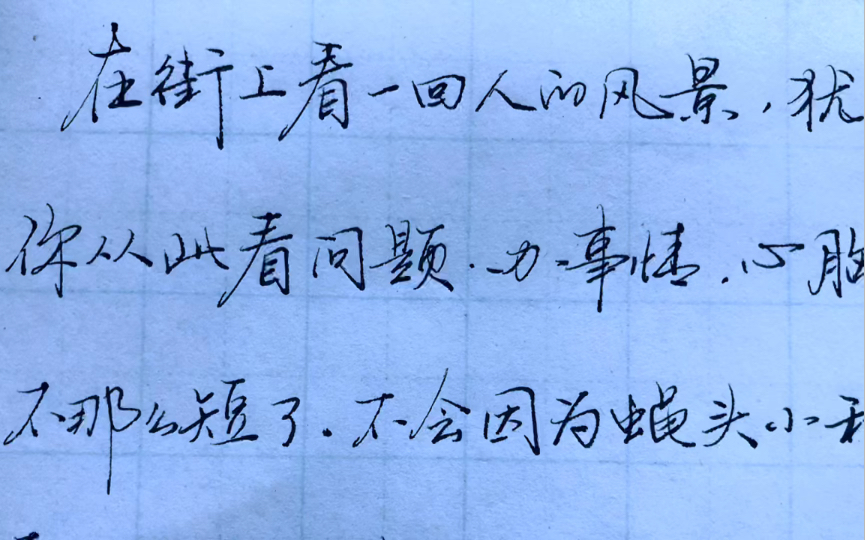 在街上看一回人的风景，犹
你从此看问题.办事情.心胸
不那么短了.不会因为蝇头小利